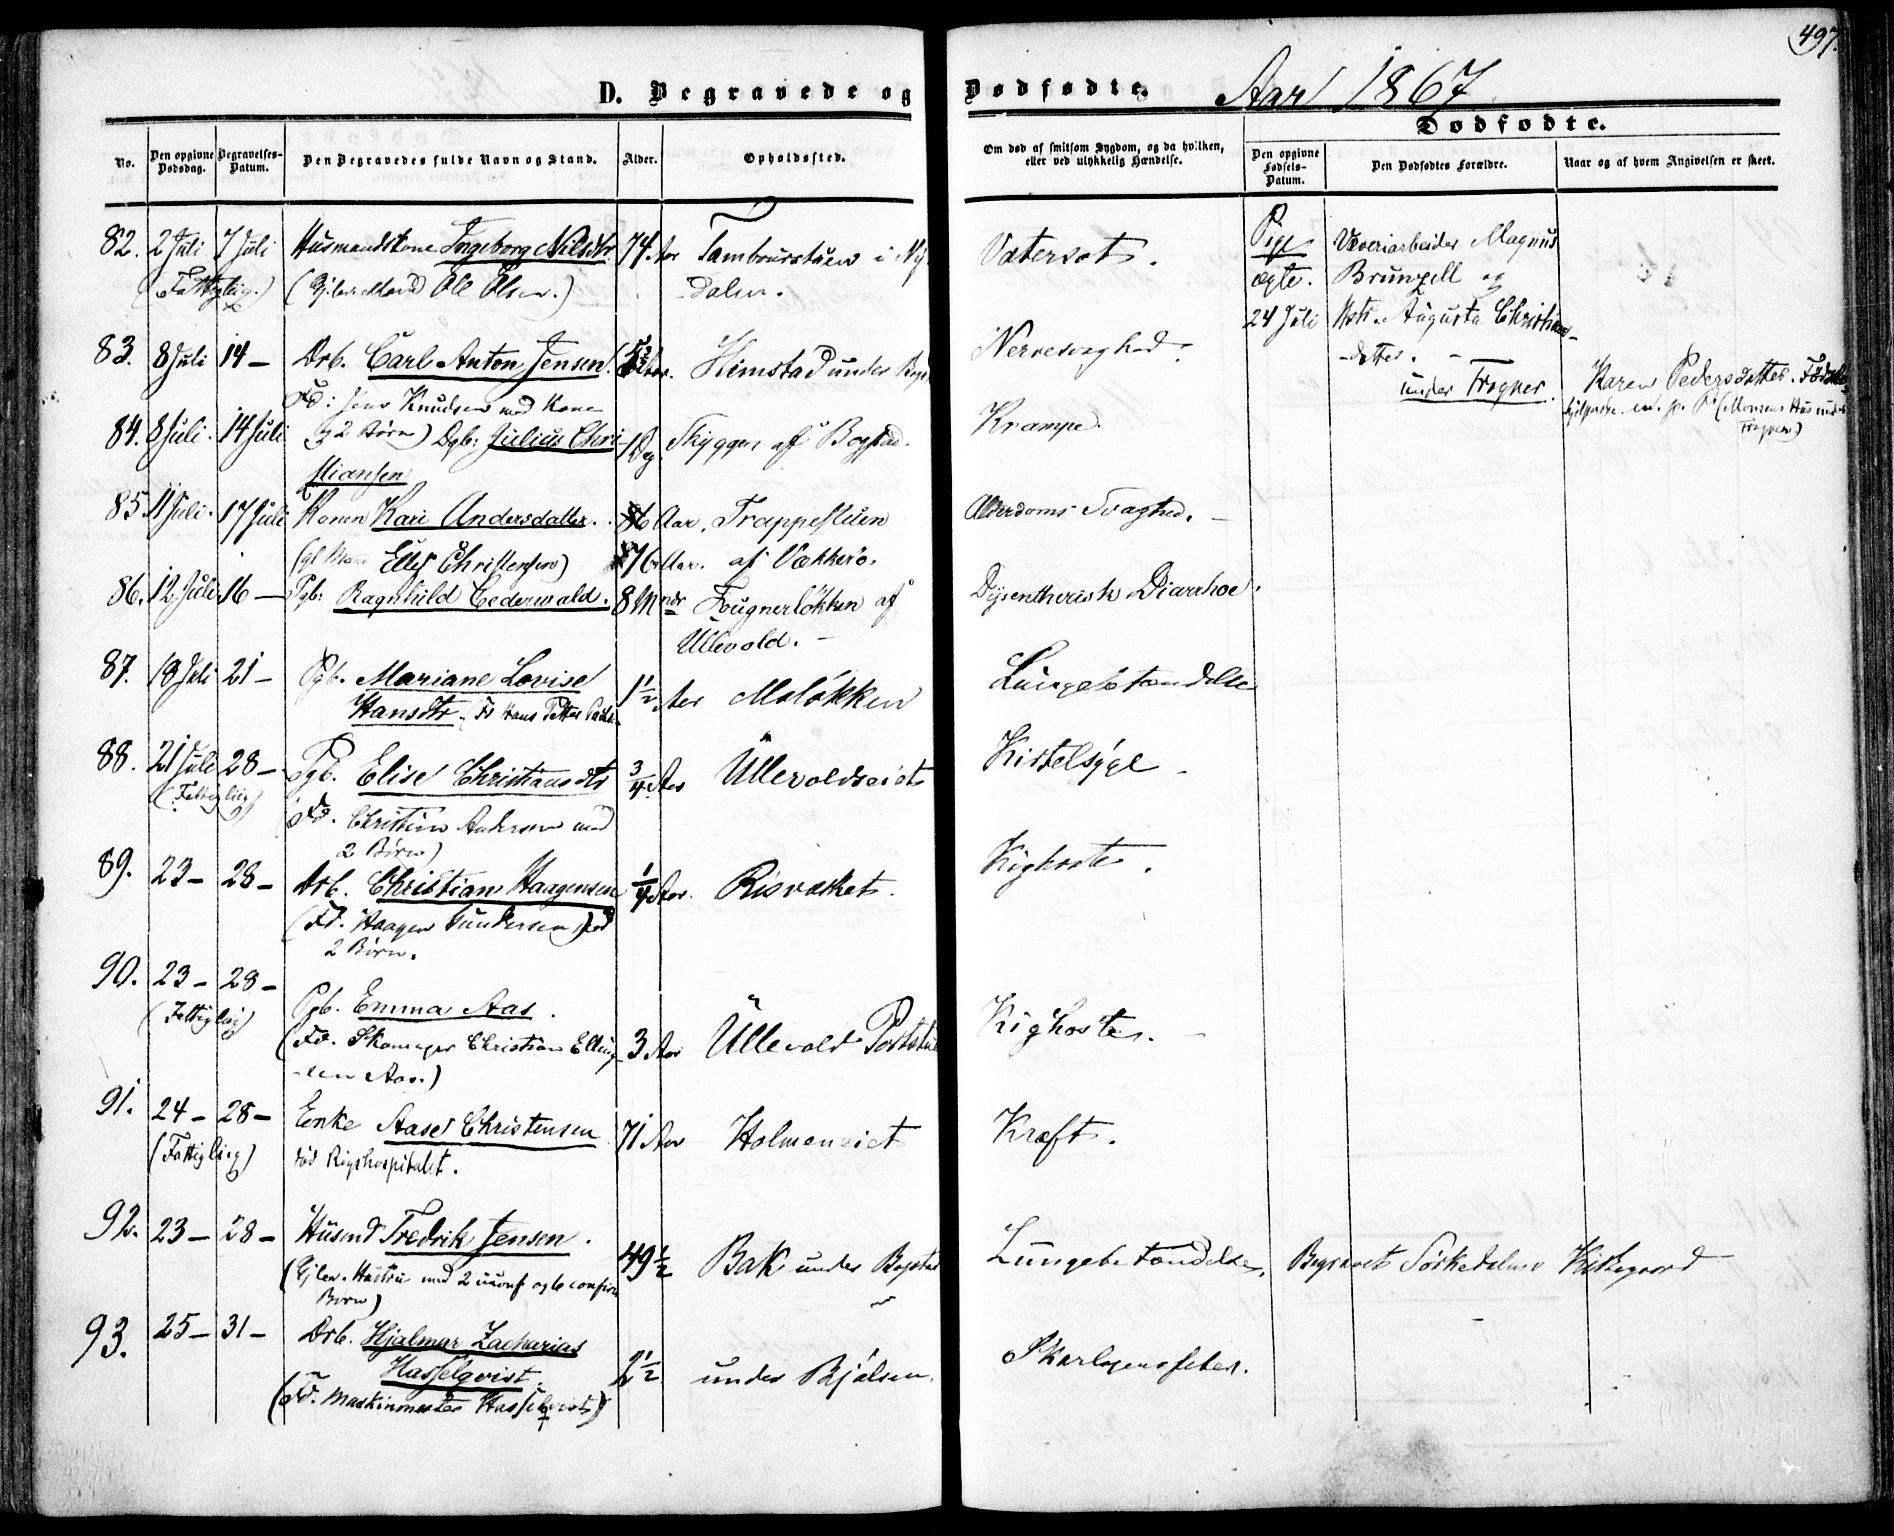 497.
D. Begravede og Dødfødte. Aar 1867
Dødfødte.
No.
Den opgivne Dødsdag.
Begravelses-Datum.
Den Begravedes fulde Navn og Stand.
Alder.
Opholdssted.
Om død af smitsom Sygdom, og da hvilken, eller ved ulykkelig Hændelse.
Den opgivne Fødsels-Datum.
Den Dødfødtes Forældre.
Naar og af hvem Angivelsen er skeet.
82. 2 Juli 7 Juli Husmandskone Ingeborg Nilsdtr 74 Aar Tambourstuen i Ny- Vatersot.
(Fattiglig.) (Ole Olsen.) dalen.
Pige
ægte.
24 Juli
Væveriarbeider Magnus
Brunzell og
Hstr. Augusta Christians-
datter.
under Frogner.
Karen Pedersdatter.
83. 8 Juli 14 — Drb. Carl Anton Jensen. Himstad under Nervesvaghed.
Fd: Jens Knudsen med Kone
og 2 Børn)
84. 8 Juli. 14 Juli Dgb: Julius Chri- 1 Dag Skyggen af Bogstad. Krampe.
stiansen
85. 11 Juli. 17 Juli Konen Kari Andersdatter. Aar. Trappestuen Alderdoms Svaghed. —
(gl Man Ellef Christensen) 76 Aar. af Vækkerø.
86. 12 Juli 16 — Pgb: Ragnhild Cederwald. 8 Mndr Fougnerløkken af Dysentherisk Diarrhoe.
Ullevold. —
87. 18 Juli 21 — Pgb. Mariane Lovise 1½ Aar Moløkken Lungebetændelse
Hansdtr. Fd Hans Petter
88. 21 Juli 28 — Pgb. Elise Christiansdtr ¾ Aar Ullevoldseiet Kirtelsyge
(Fattiglig) (Fd. Christian Andersen med
2 Børn)
89. 23 — 28 — Drb. Christian Haagensen ¼ Aar. Risvasket. Kighoste.
(Fd. Haagen Gundersen
2 Børn.
90. 23 — 28 —
(Fattiglig) Pgb. Emma Aas. 3 Aar Ullevold Portstue Kighoste.
(Fd. Skomager Christian Elling-
sen Aas.)
91. 24 — 28 — Enke Aase Christensen 71 Aar Holmeneiet Kræft.
(Fattiglig) død Rigshospitalet.
92. 23 — 28 — Husmd Fredrik Jensen. 49½ Bak under Bogstad Lungebetændelse. Begravet Sørkedalens Kirkegaard
(Efter. Hustru med 2 uconf og 6 confirm
Børn)
93. 25 — 31 — Drb. Hjalmar Zacharias
Hasselqvist. 2½ under Bjølsen. Skarlagensfeber.
(Fd. Maskinmester Hasselqvist)